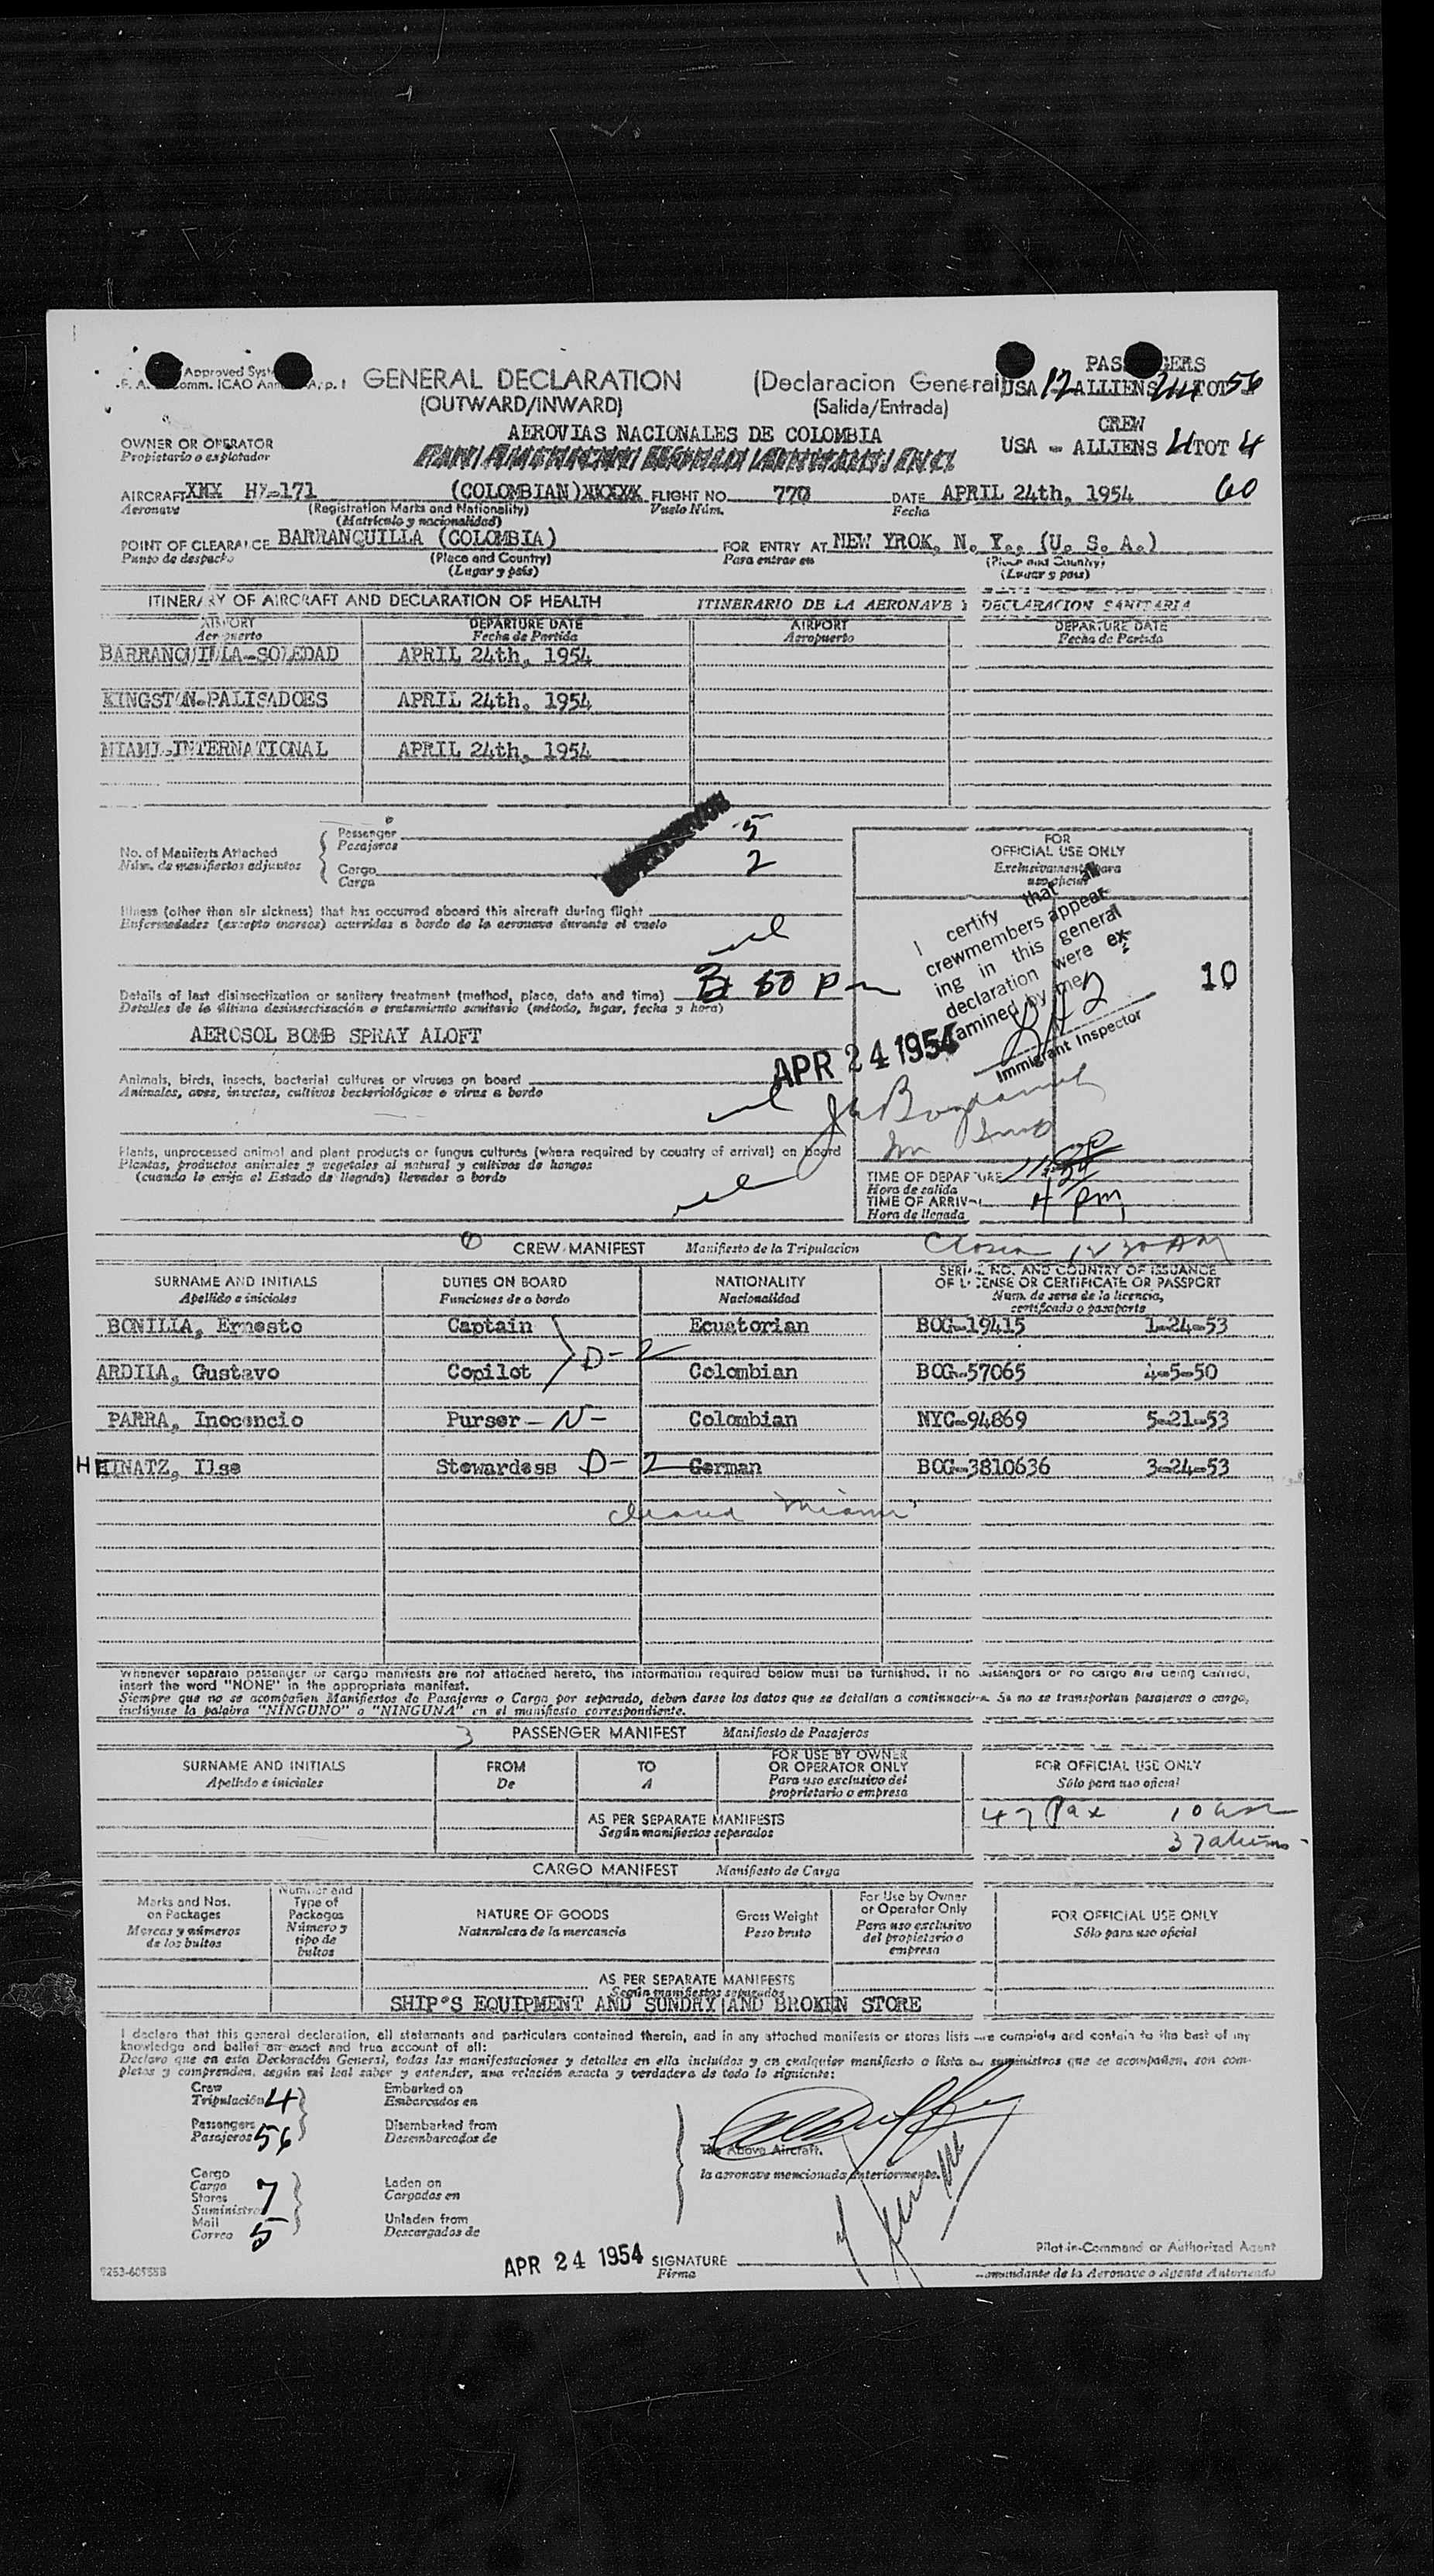 Approved
Comm. ICAO
GENERAL DECLARATION
(OUTWARD/INWARD)
(Declaracion General)
(Salida/Entrada)
PASSENGERS
USA 12 ALLIENS 44 TOT 56
CREW
USA - ALLIENS 4 TOT 4
60
OWNER OR OPERATOR
Propietario o explotador
AEROVIAS NACIONALES DE COLOMBIA
AIRCRAFT XMX HK-171 (COLOMBIAN) XXXXX FLIGHT NO. 770 DATE APRIL 24th, 1954
Aeronave (Registration Marks and Nationality) Vuelo Núm. Fecha
(Matrícula y nacionalidad)
POINT OF CLEARANCE BARRANQUILLA (COLOMBIA) FOR ENTRY AT NEW YROK, N. Y., (U. S. A.)
Punto de despacho (Place and Country) Para entrar en (Place and Country)
(Lugar y país) (Lugar y país)
ITINERARY OF AIRCRAFT AND DECLARATION OF HEALTH ITINERARIO DE LA AERONAVE Y DECLARACION SANITARIA
AIRPORT DEPARTURE DATE AIRPORT DEPARTURE DATE
Aeropuerto Fecha de Partida Aeropuerto Fecha de Partida
BARRANQUILLA-SOLEDAD APRIL 24th, 1954
KINGSTON-PALISADOES APRIL 24th, 1954
MIAMI-INTERNATIONAL APRIL 24th, 1954
No. of Manifests Attached
Núm. de manifiestos adjuntos
Passenger 5
Pasajeros
Cargo 2
Carga
FOR
OFFICIAL USE ONLY
Exclusivamente para
uso oficial
I certify that all
crewmembers appear-
ing in this general
declaration were ex-
amined by me
Immigrant Inspector
10
Illness (other than air sickness) that has occurred aboard this aircraft during flight
Enfermedades (excepto mareos) ocurridas a bordo de la aeronave durante el vuelo
nil
Details of last disinsectization or sanitary treatment (method, place, date and time) 3 50 Pm
Detalles de la última desinsectisación o tratamiento sanitario (método, lugar, fecha y hora)
AEROSOL BOMB SPRAY ALOFT
APR 24 1954
Animals, birds, insects, bacterial cultures or viruses on board
Animales, aves, insectos, cultivos bacteriológicos o virus a bordo
nil
Plants, unprocessed animal and plant products or fungus cultures (where required by country of arrival) on board
Plantas, productos animales y vegetales al natural y cultivos de hongos
(cuando lo exija el Estado de llegada) llevados a bordo
nil
TIME OF DEPARTURE
Hora de salida
TIME OF ARRIVAL 4 pm
Hora de llegada
CREW MANIFEST Manifiesto de la Tripulacion
12 30 AM
SURNAME AND INITIALS DUTIES ON BOARD NATIONALITY SERIAL NO. AND COUNTRY OF ISSUANCE
OF LICENSE OR CERTIFICATE OR PASSPORT
Apellido e iniciales Funciones de a bordo Nacionalidad Num. de serie de la licencia,
certificado o pasaporte
BONILLA, Ernesto Captain Ecuatorian BOG-19415 1-24-53
D-2
ARDILA, Gustavo Copilot Colombian BOG-57065 4-5-50
PARRA, Inocencio Purser - N - Colombian NYC-94869 5-21-53
HEINATZ, Ilse Stewardess D-2 German BOG-3810636 3-24-53
cleared Miami
Whenever separate passenger or cargo manifests are not attached hereto, the information required below must be furnished. If no passengers or no cargo are being carried,
insert the word "NONE" in the appropriate manifest.
Siempre que no se acompañen Manifiestos de Pasajeros o Carga por separado, deben darse los datos que se detallan a continuación. Si no se transportan pasajeros o carga,
inclúyase la palabra "NINGUNO" o "NINGUNA" en el manifiesto correspondiente.
3
PASSENGER MANIFEST Manifiesto de Pasajeros
SURNAME AND INITIALS FROM TO FOR USE BY OWNER
OR OPERATOR ONLY FOR OFFICIAL USE ONLY
Apellido e iniciales De A Para uso exclusivo del
propietario o empresa Sólo para uso oficial
AS PER SEPARATE MANIFESTS
Según manifiestos separados
47 Pax 10 usa
37 aliens
CARGO MANIFEST Manifiesto de Carga
Marks and Nos.
on Packages
Marcas y números
de los bultos
Number and
Type of
Packages
Número y
tipo de
bultos
NATURE OF GOODS
Naturaleza de la mercancia
Gross Weight
Peso bruto
For Use by Owner
or Operator Only
Para uso exclusivo
del propietario o
empresa
FOR OFFICIAL USE ONLY
Sólo para uso oficial
AS PER SEPARATE MANIFESTS
Según manifiestos separados
SHIP'S EQUIPMENT AND SUNDRY AND BROKEN STORE
I declare that this general declaration, all statements and particulars contained therein, and in any attached manifests or stores lists are complete and contain to the best of my
knowledge and belief an exact and true account of all:
Declaro que en esta Declaración General, todas las manifestaciones y detalles en ella incluidos y en cualquier manifiesto o lista de suministros que se acompañen, son com-
pletos y comprenden, según mi leal saber y entender, una relación exacta y verdadera de todo lo siguiente:
Crew
Tripulación 4
Passengers
Pasajeros 56
Embarked on
Embarcados en
Disembarked from
Desembarcados de
Cargo
Carga
Stores
Suministros 7
Mail
Correo 5
Laden on
Cargados en
Unladen from
Descargados de
The Above Aircraft.
la aeronave mencionada anteriormente.
APR 24 1954
SIGNATURE
Firma
Pilot-in-Command or Authorized Agent
Comandante de la Aeronave o Agente Autorizado